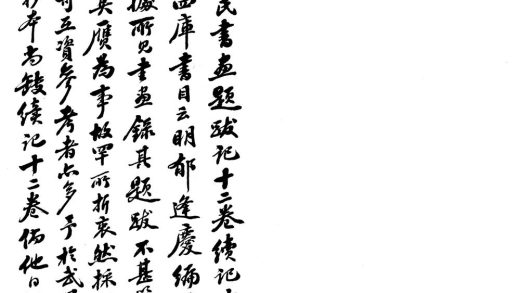 民書畫題跋記十二卷續記
四庫書目云明郁逢慶編
據所見書畫錄其題跋不甚
真贋為事故罕所折衷然採
可互資參考者亦多予於武
抄本尚缺續記十二卷倘他日